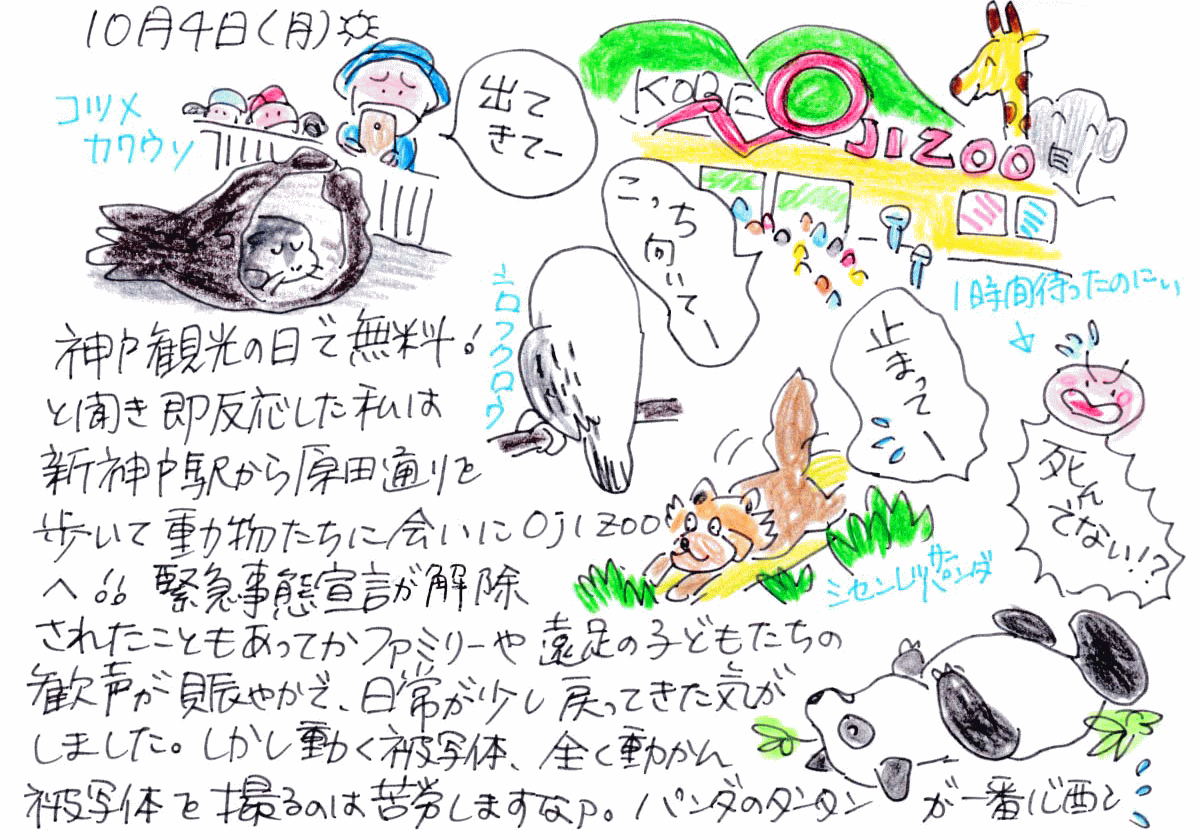 10月4日(月)
コツメ
カワウソ
出て
きてー
KOBE
OJIZOO
こっち
向いてー
1時間待ったのにぃ
シロフクロウ
止まってー
死ん
でない!?
シセンレッサーパンダ
神戸観光の日で無料!
と聞き即反応した私は
新神戸駅から原田通りを
歩いて動物たちに会いにOJIZOO
へ。緊急事態宣言が解除
されたこともあってかファミリーや遠足の子どもたちの
歓声が賑やかで、日常が少し戻ってきた気が
しました。しかし動く被写体、全く動かん
被写体を撮るのは苦労しますなア。パンダのタンタンが一番心配